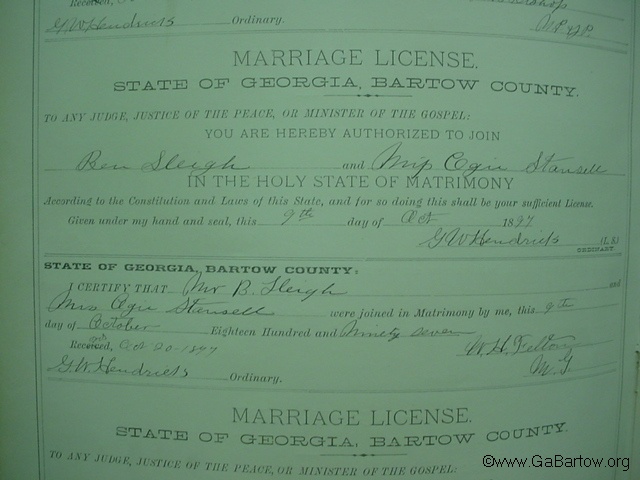 Received,
G W Hendricks Ordinary.
MARRIAGE LICENSE.
STATE OF GEORGIA, BARTOW COUNTY.
TO ANY JUDGE, JUSTICE OF THE PEACE, OR MINISTER OF THE GOSPEL:
YOU ARE HEREBY AUTHORIZED TO JOIN
Ben Sleigh and Miss Ogie Stansell
IN THE HOLY STATE OF MATRIMONY
According to the Constitution and Laws of this State, and for so doing this shall be your sufficient License.
Given under my hand and seal, this 9th day of Oct 1897
G W Hendricks (L.S)
ORDINARY.
STATE OF GEORGIA, BARTOW COUNTY:
I CERTIFY THAT Mr B. Sleigh and
Miss Ogie Stansell were joined in Matrimony by me, this 9th
day of October Eighteen Hundred and Ninety seven
Received, Oct 20-1897 W. H. Felton
G. W. Hendricks Ordinary. M G
MARRIAGE LICENSE.
STATE OF GEORGIA, BARTOW COUNTY.
TO ANY JUDGE, JUSTICE OF THE PEACE, OR MINISTER OF THE GOSPEL:
©www.GaBartow.org